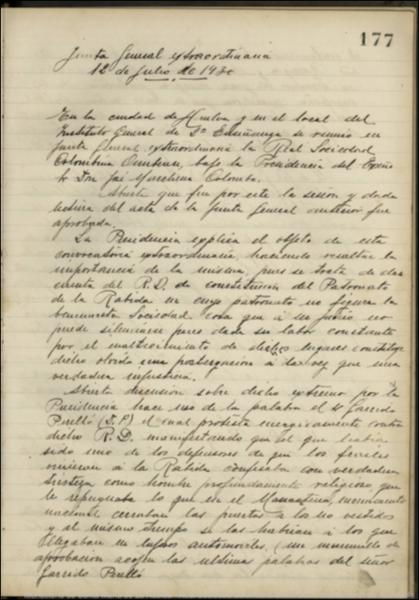 177
Junta General extraordinaria
12 de Julio de 1930
En la ciudad de Huelva y en el local del
Instituto General de 2ª Enseñanza se reunió en
Junta General extraordinaria la Real Sociedad
Colombina Onubense, bajo la Presidencia del Excmo
Sr Don José Marchena Colombo.
Abierta que fue por este la sesión y dada
lectura del acta de la Junta General anterior fue
aprobada.
La Presidencia explica el objeto de esta
convocatoria extraordinaria haciendo resaltar la
importancia de la misma, pues se trata de dar
cuenta del R.D. de constitución del Patronato
de la Rabida en cuyo patronato no figura la
benemerita Sociedad cosa que á su juicio no
puede silenciarse pues dada su labor constante
por el enaltecimiento de dichos lugares constituye
dicho olvido una postergación á la vez que una
verdadera injusticia.
Abierta discusión sobre dicho extremo por la
Presidencia hace uso de la palabra el Sr Garrido
Perelló el cual protesta energicamente contra
dicho R.D. manifestando que el que habia
sido uno de los defensores de que los frailes
vinieran á la Rabida confesaba con verdadera
tristeza como hombre profundamente religioso, que
le repugnaba lo que en el Monasterio, monumento
nacional cerraban las puertas a los mal vestidos
y al mismo tiempo se las habrian á los que
llegaban en lujosos automoviles, (un murmullo de
aprobación acojen las ultimas palabras del señor
Garrido Perelló